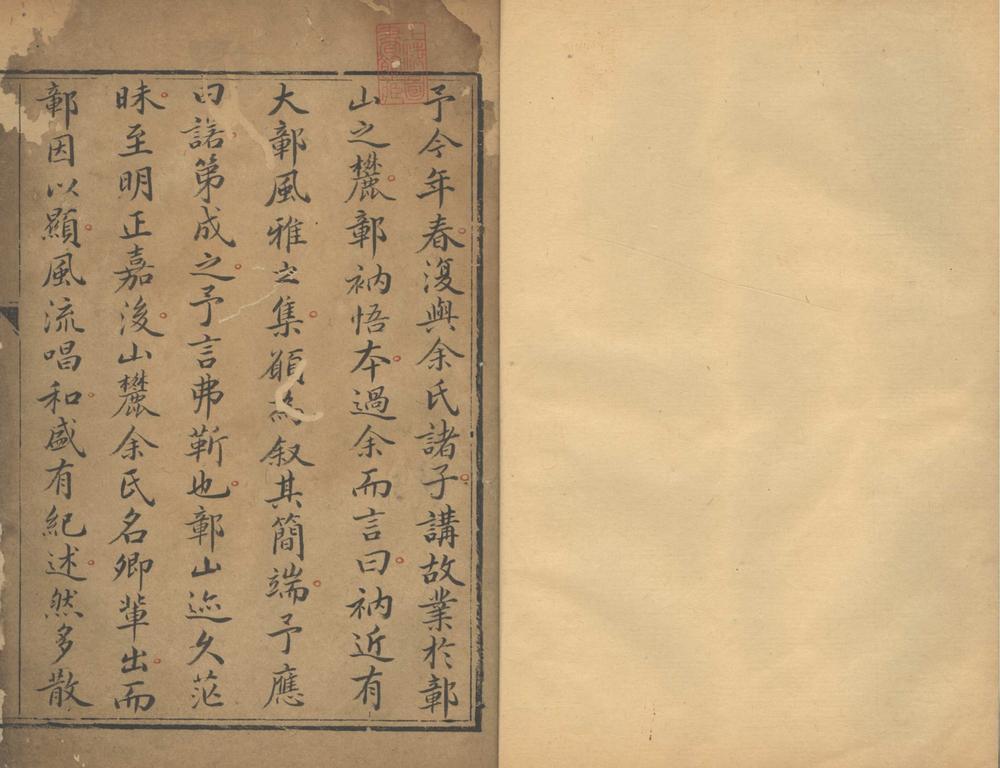 予今年春復與余氏諸子講故業於鄣
山之麓鄣衲悟本過余而言曰衲近有
大鄣風雅之集願為叙其簡端予應
曰諾第成之予言弗靳也鄣山迹久茫
昧至明正嘉後山麓余氏名卿輩出而
鄣因以顯風流唱和盛有紀述然多散
上海圖書館藏